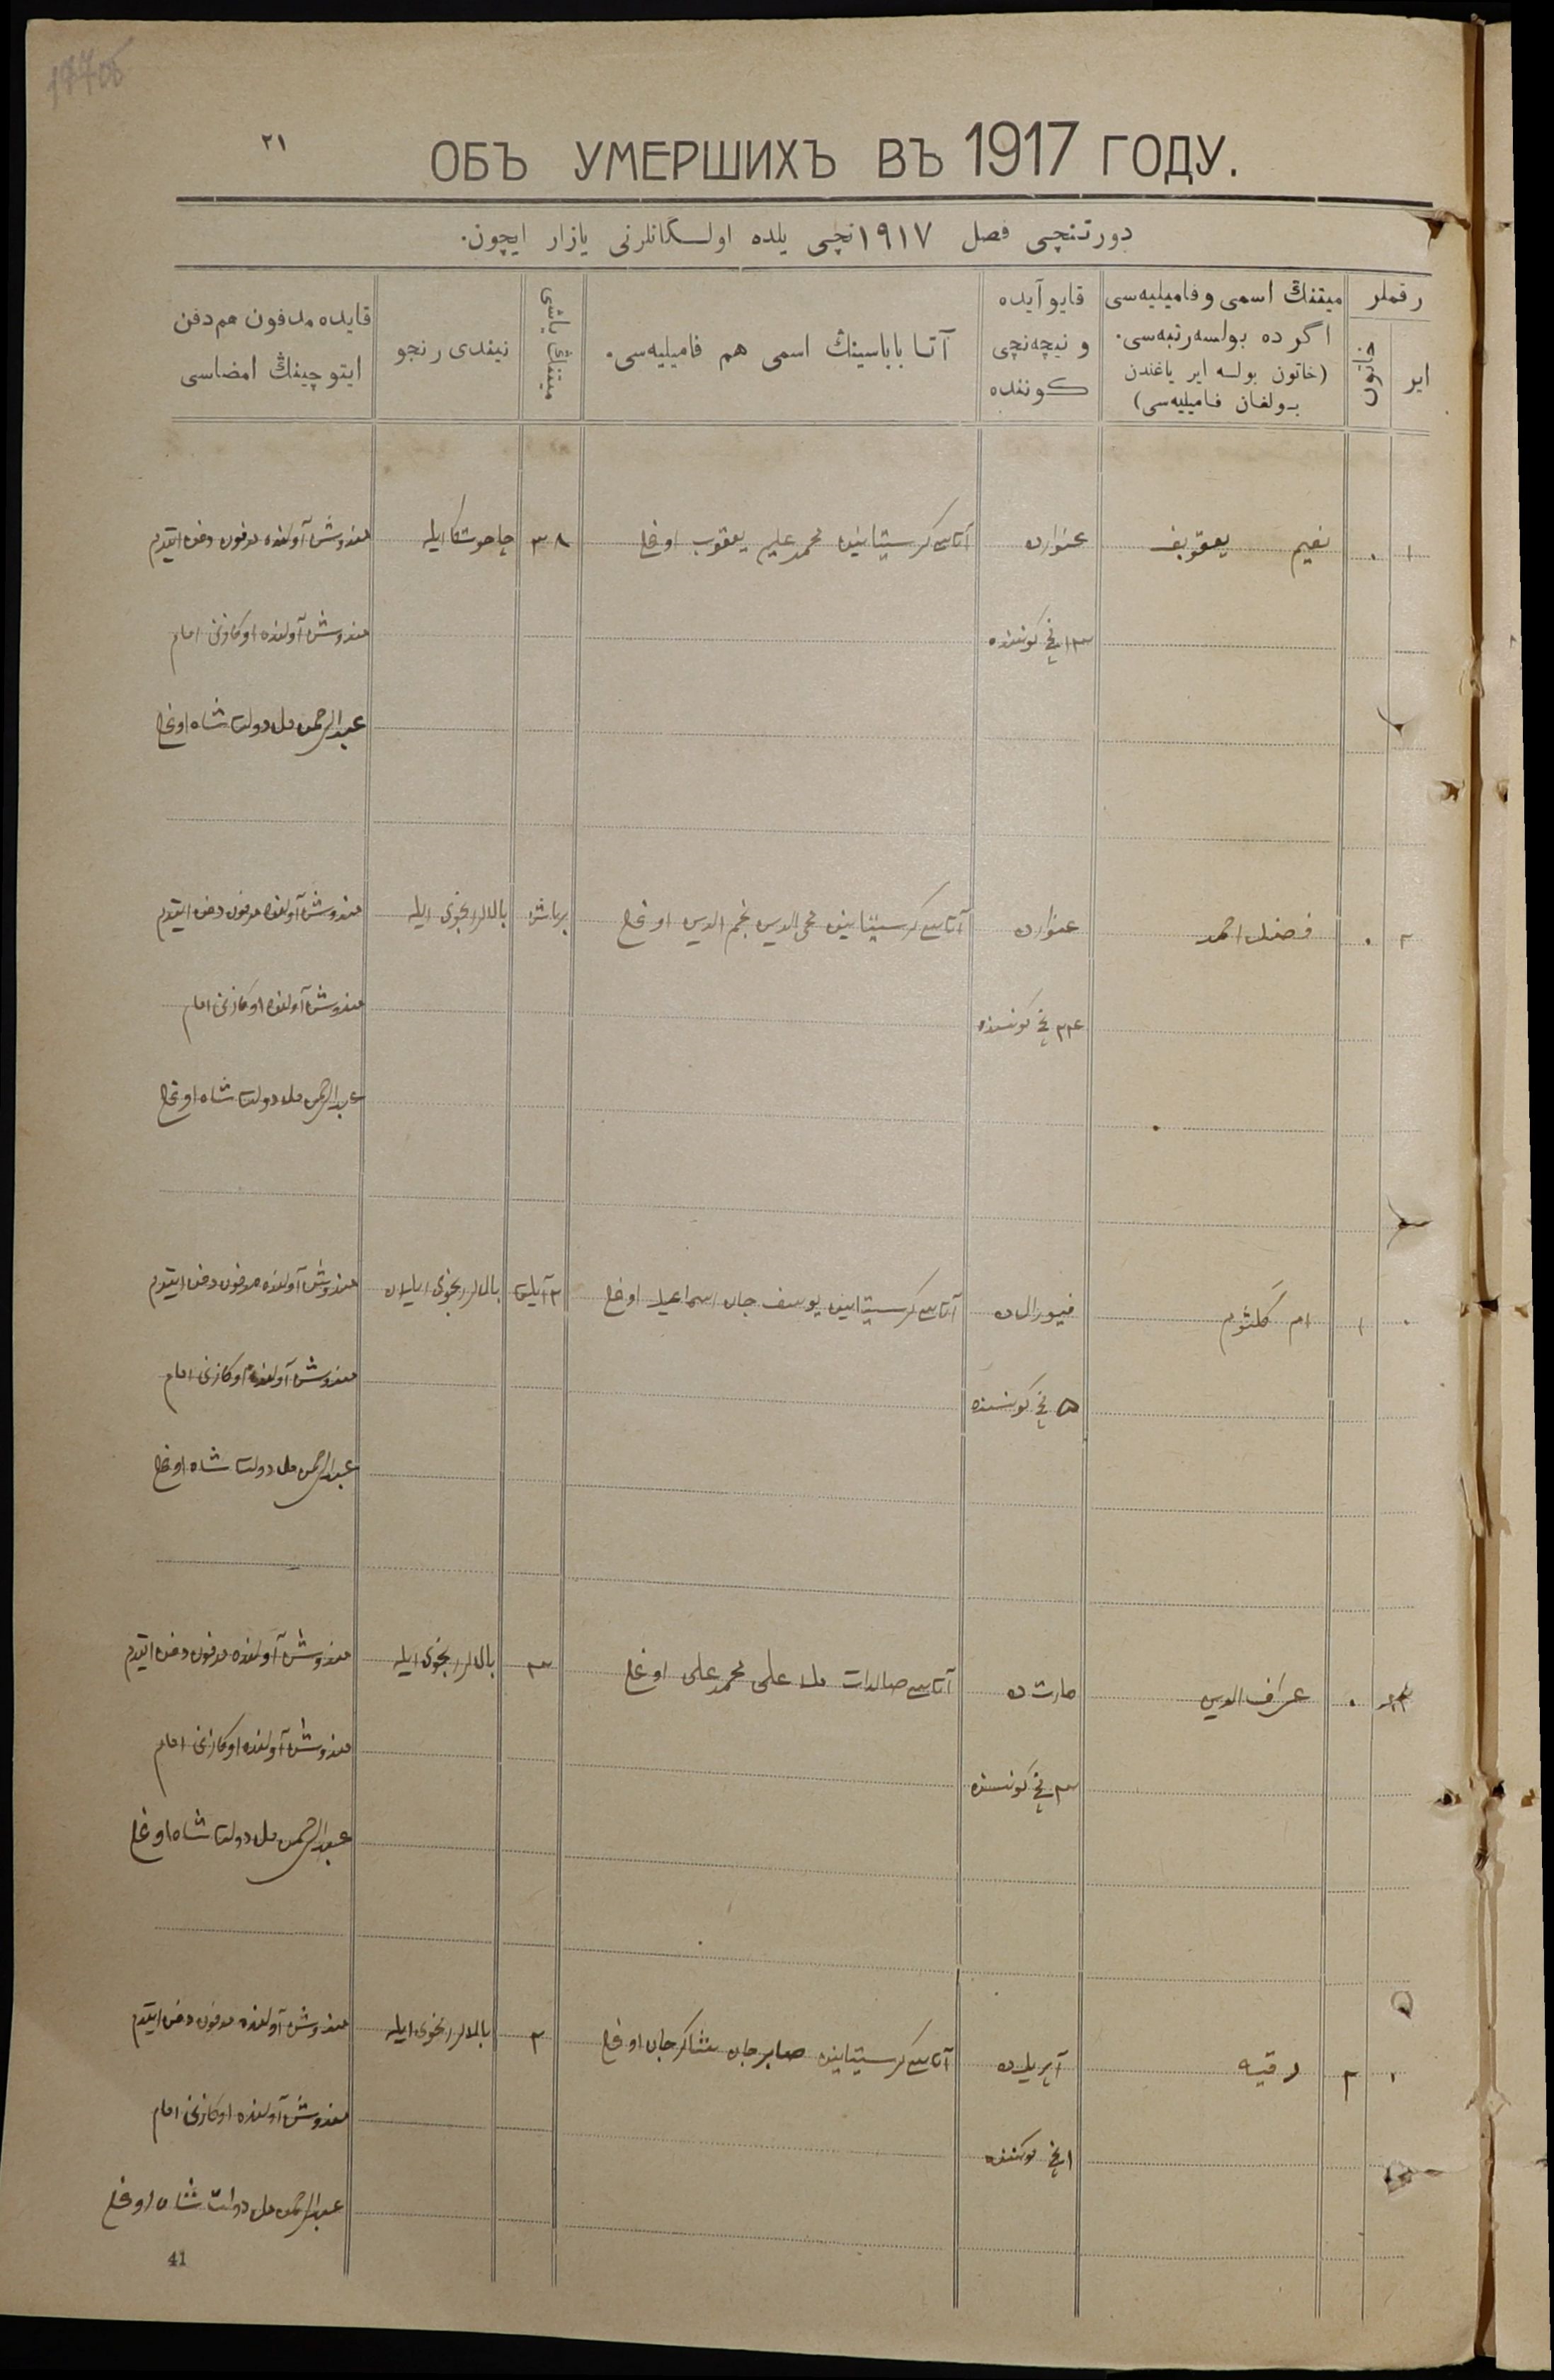 ٢١
ОБЪ УМЕРШИХЪ ВЪ 1917 ГОДУ.
دورتنچی فصل ١٩١٧نچی یلده اولـگانلرنی یازار ایچون.
رقملر
ایر
خاتون
میتنڭ اسمی و فامیلیه‌سی
اگر ده بولسه رتبه‌سی.
(خاتون بولسه ایر یاغندن
بـولغان فامیلیه‌سی)
قایو آیده
و نیچه‌نچی
كـوننده
آتـا باباسینڭ اسمی هم فامیلییه‌سی.
میتنڭ یاشی
نیندی رنجو
قایده مدفون هم دفن
ایتوچینڭ امضاسی
١
٠
نعیم یعقوبف
عنوارده
١٣نچی کوننده
آتاسی کرستیانین محمد علیم یعقوب اوغلی
٣٨
ایله
مندوش آولنده مدفون دفن ایتدم
مندوش آولنده اوکازنی امام
عبدالرحمن دولت شاه اوغلی
٢
٠
فضل احمد
عنوارده
٢٤ نچی کوننده
آتاسی کرستیانین محی الدین نجم الدین اوغلی
بر یاش
بالالر رنجوی ایله
مندوش آولنده مدفون دفن ایتدم
مندوش آولنده اوکازنی امام
عبدالرحمن دولت شاه اوغلی
٠
١
ام گلثوم
فیورالده
٥ نچی کوننده
آتاسی کرستیانین یوسف جان اسماعیل اوغلی
٢ آیلق
بالالر رنجوی
مندوش آولنده مدفون دفن ایتدم
مندوش آولنده اوکازنی امام
عبدالرحمن دولت شاه اوغلی
٠
عراف الدین
مارتده
٣ نچی کوننده
آتاسی صالدات علی محمد علی اوغلی
٣
بالالر رنجوی ایله
مندوش آولنده مدفون دفن ایتدم
مندوش آولنده اوکازنی امام
عبدالرحمن دولت شاه اوغلی
٠
٢
رقیه
آپریلده
١ نچی کوننده
آتاسی کرستیانین صابر جان شاکر جان اوغلی
٢
بالالر رنجوی ایله
مندوش آولنده مدفون دفن ایتدم
مندوش آولنده اوکازنی امام
عبدالرحمن دولت شاه اوغلی
41